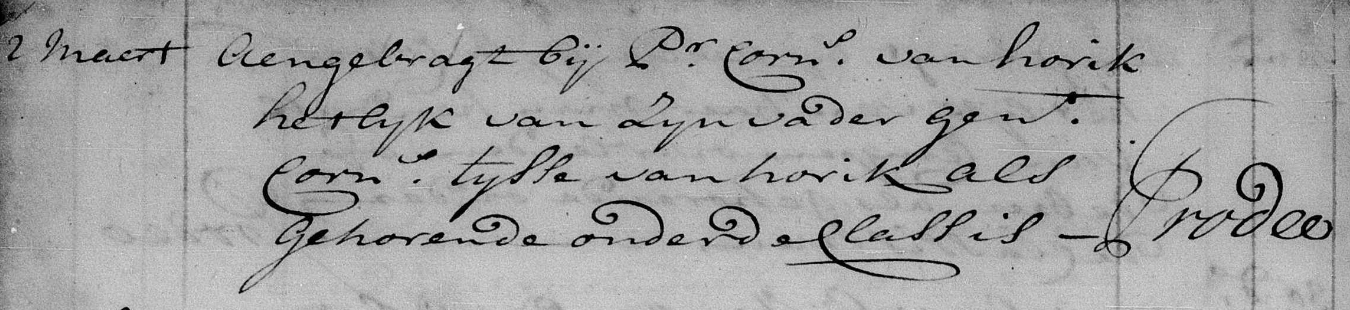 2 Maert Aengebragt bij Pr. Corns. van horik
het lyk van zyn vader gent.
Corns. tysse van horik als
Gehorende onder de Classis – Prodeo